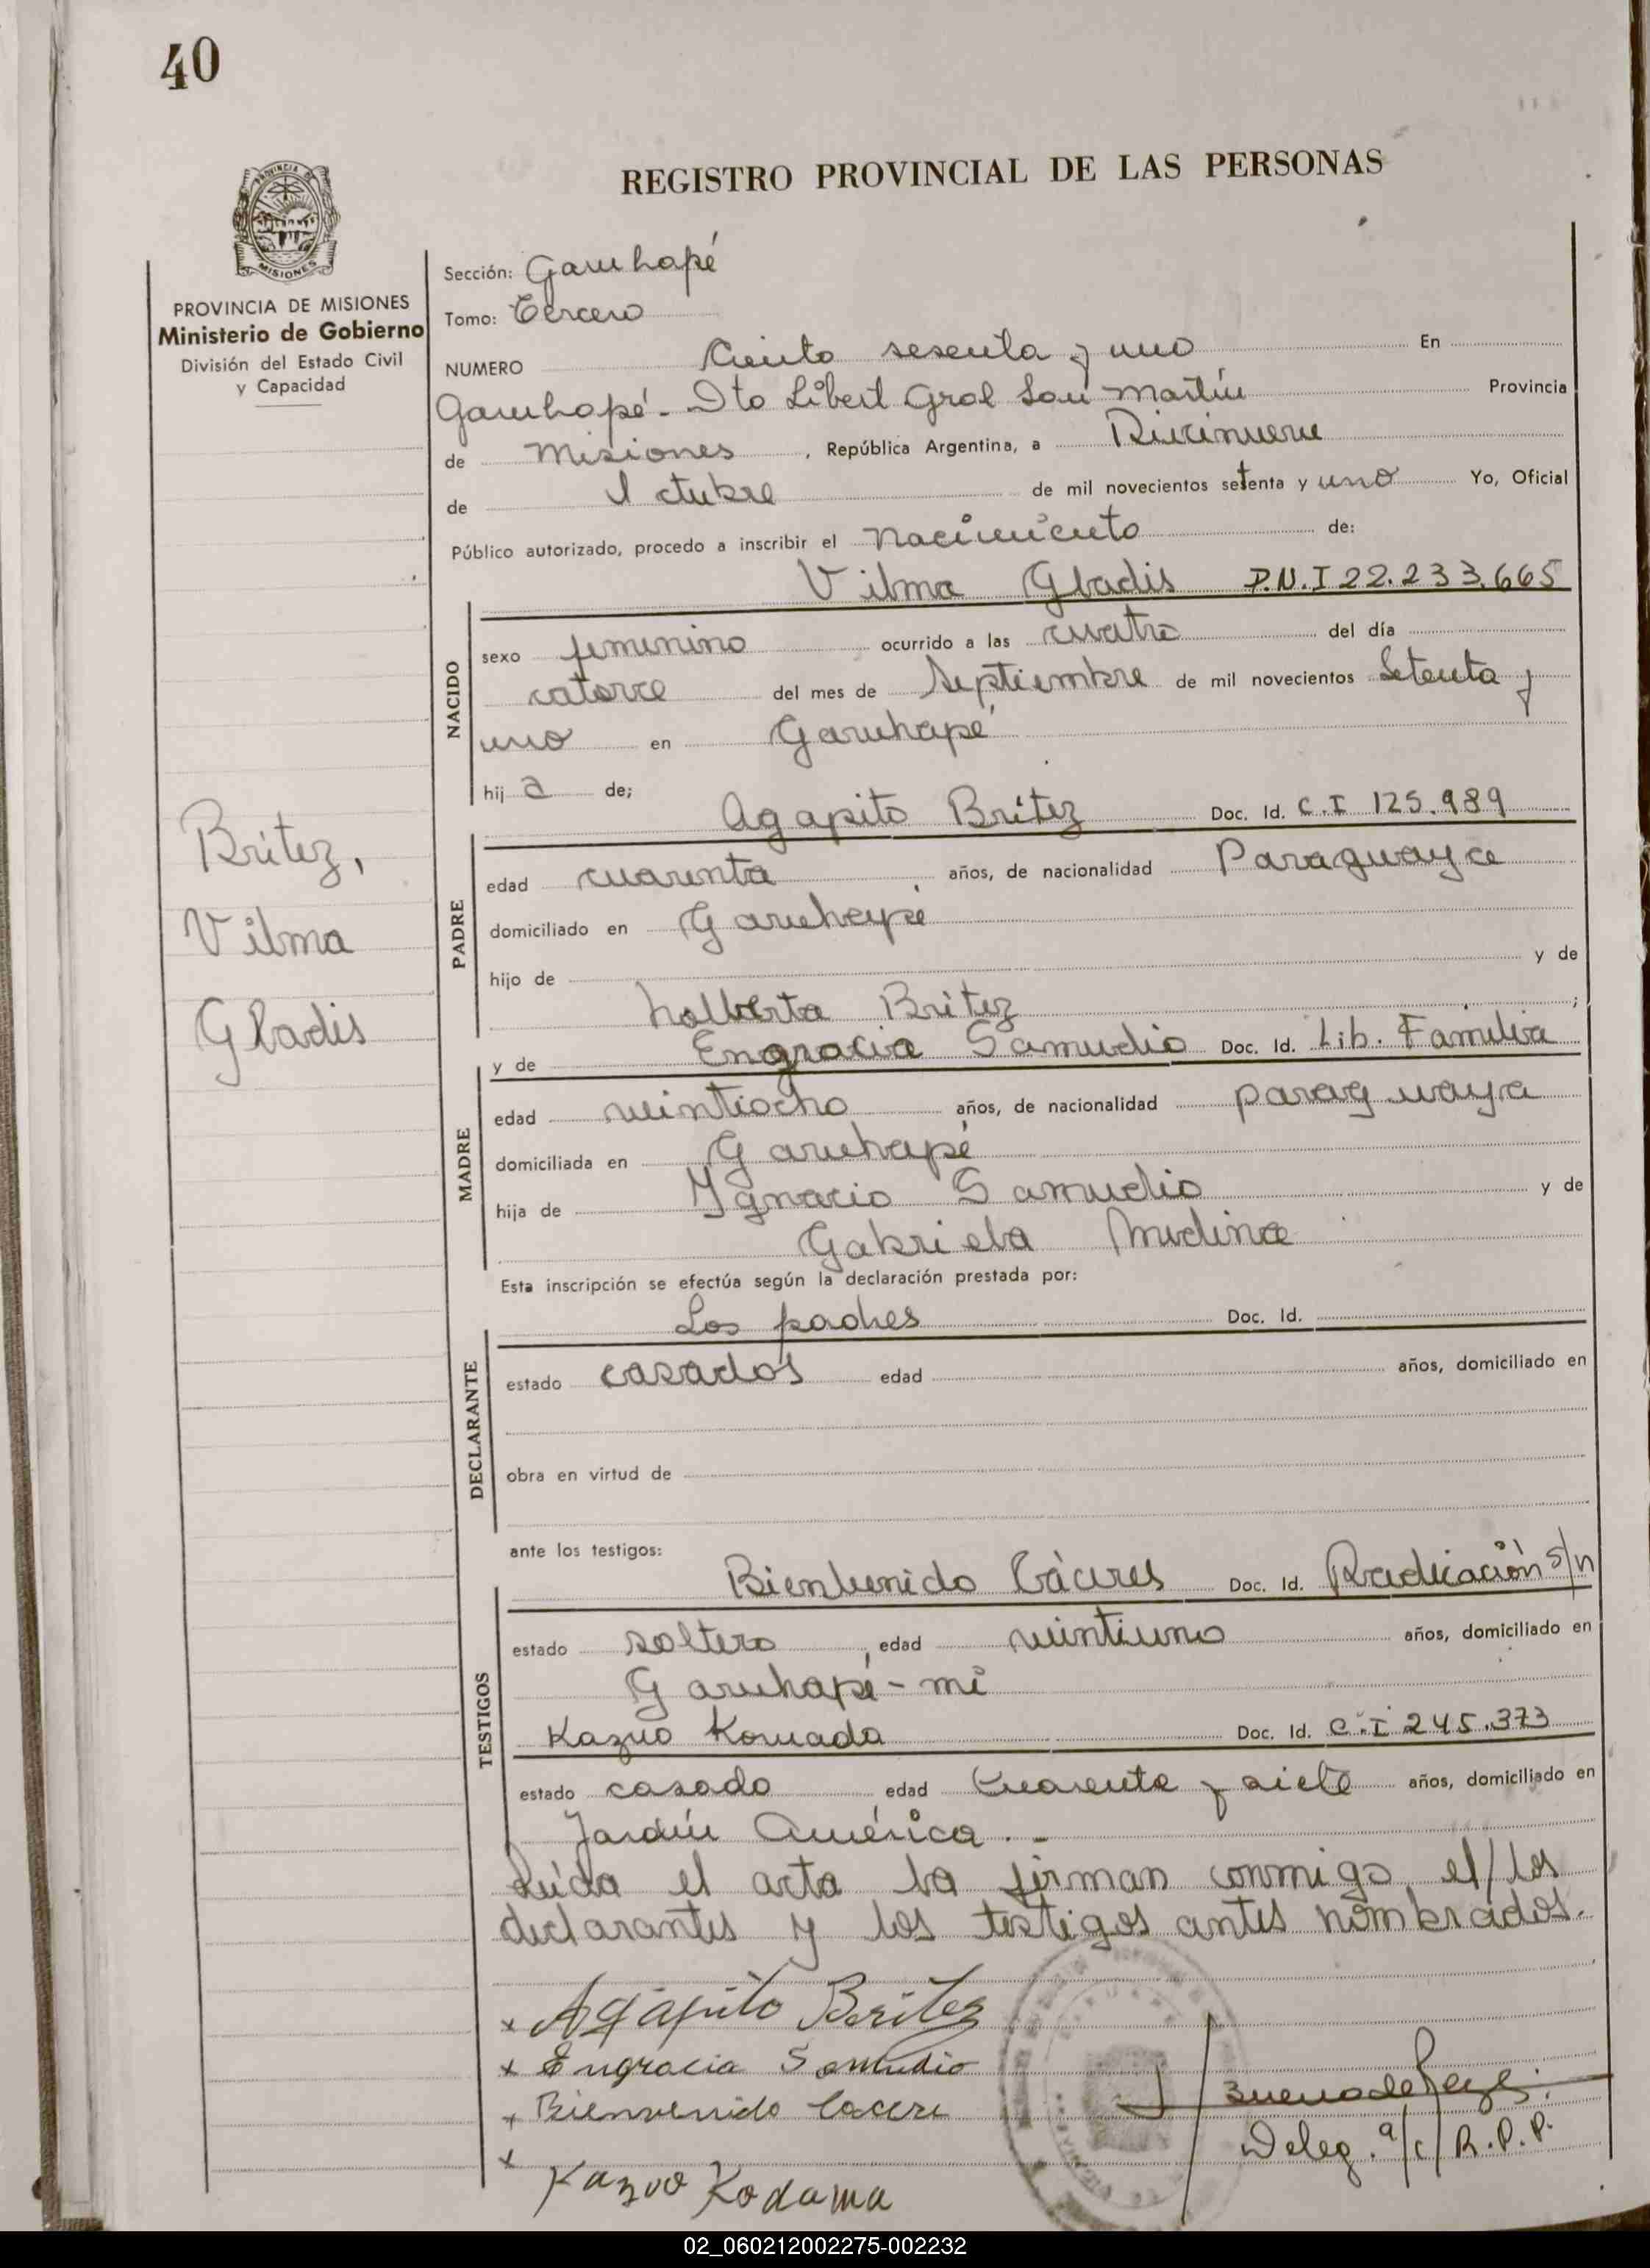 40
REGISTRO PROVINCIAL DE LAS PERSONAS
PROVINCIA DE MISIONES
Ministerio de Gobierno
División del Estado Civil
y Capacidad
Sección: Garuhapé
Tomo: Tercero
NUMERO Ciento sesenta y uno En
Garuhapé - Dto Libert Gral San Martín Provincia
de Misiones, República Argentina, a
de Octubre de mil novecientos setenta y uno Yo, Oficial
Público autorizado, procedo a inscribir el Nacimiento de:
Vilma Gladis D.N.I 22.233.665
NACIDO
sexo femenino ocurrido a las cuatro del día
catorce del mes de Septiembre de mil novecientos Setenta y
uno en Garuhapé
hij a de;
Agapito Britez Doc. Id. C.I 125.989
PADRE
edad cuarenta años, de nacionalidad Paraguaya
domiciliado en Garuhapé
hijo de y de
Britez ;
Britez,
Vilma
Gladis
y de Engracia Samudio Doc. Id. Lib. Familia
MADRE
edad veintiocho años, de nacionalidad paraguaya
domiciliada en Garuhapé
hija de Ygnacio Samudio y de
Gabriela Medina
Esta inscripción se efectúa según la declaración prestada por:
Los padres Doc. Id.
DECLARANTE
estado casados edad años, domiciliado en
obra en virtud de
ante los testigos:
Bienvenido Cáceres Doc. Id. Radicación s/n
TESTIGOS
estado soltero, edad veintiuno años, domiciliado en
Garuhapé-mi
Kazuo Komada Doc. Id. C.I 245.373
estado casado edad Cuarenta y siete años, domiciliado en
Jardín América . -
Leída el acta la firman conmigo el/los
declarantes y los testigos antes nombrados.
x Agapito Britez
x Engracia Samudio
x Bienvenido Cacere
x Kazuo Kodama
Deleg. a/c/ R.P.P.
02_060212002275-002232